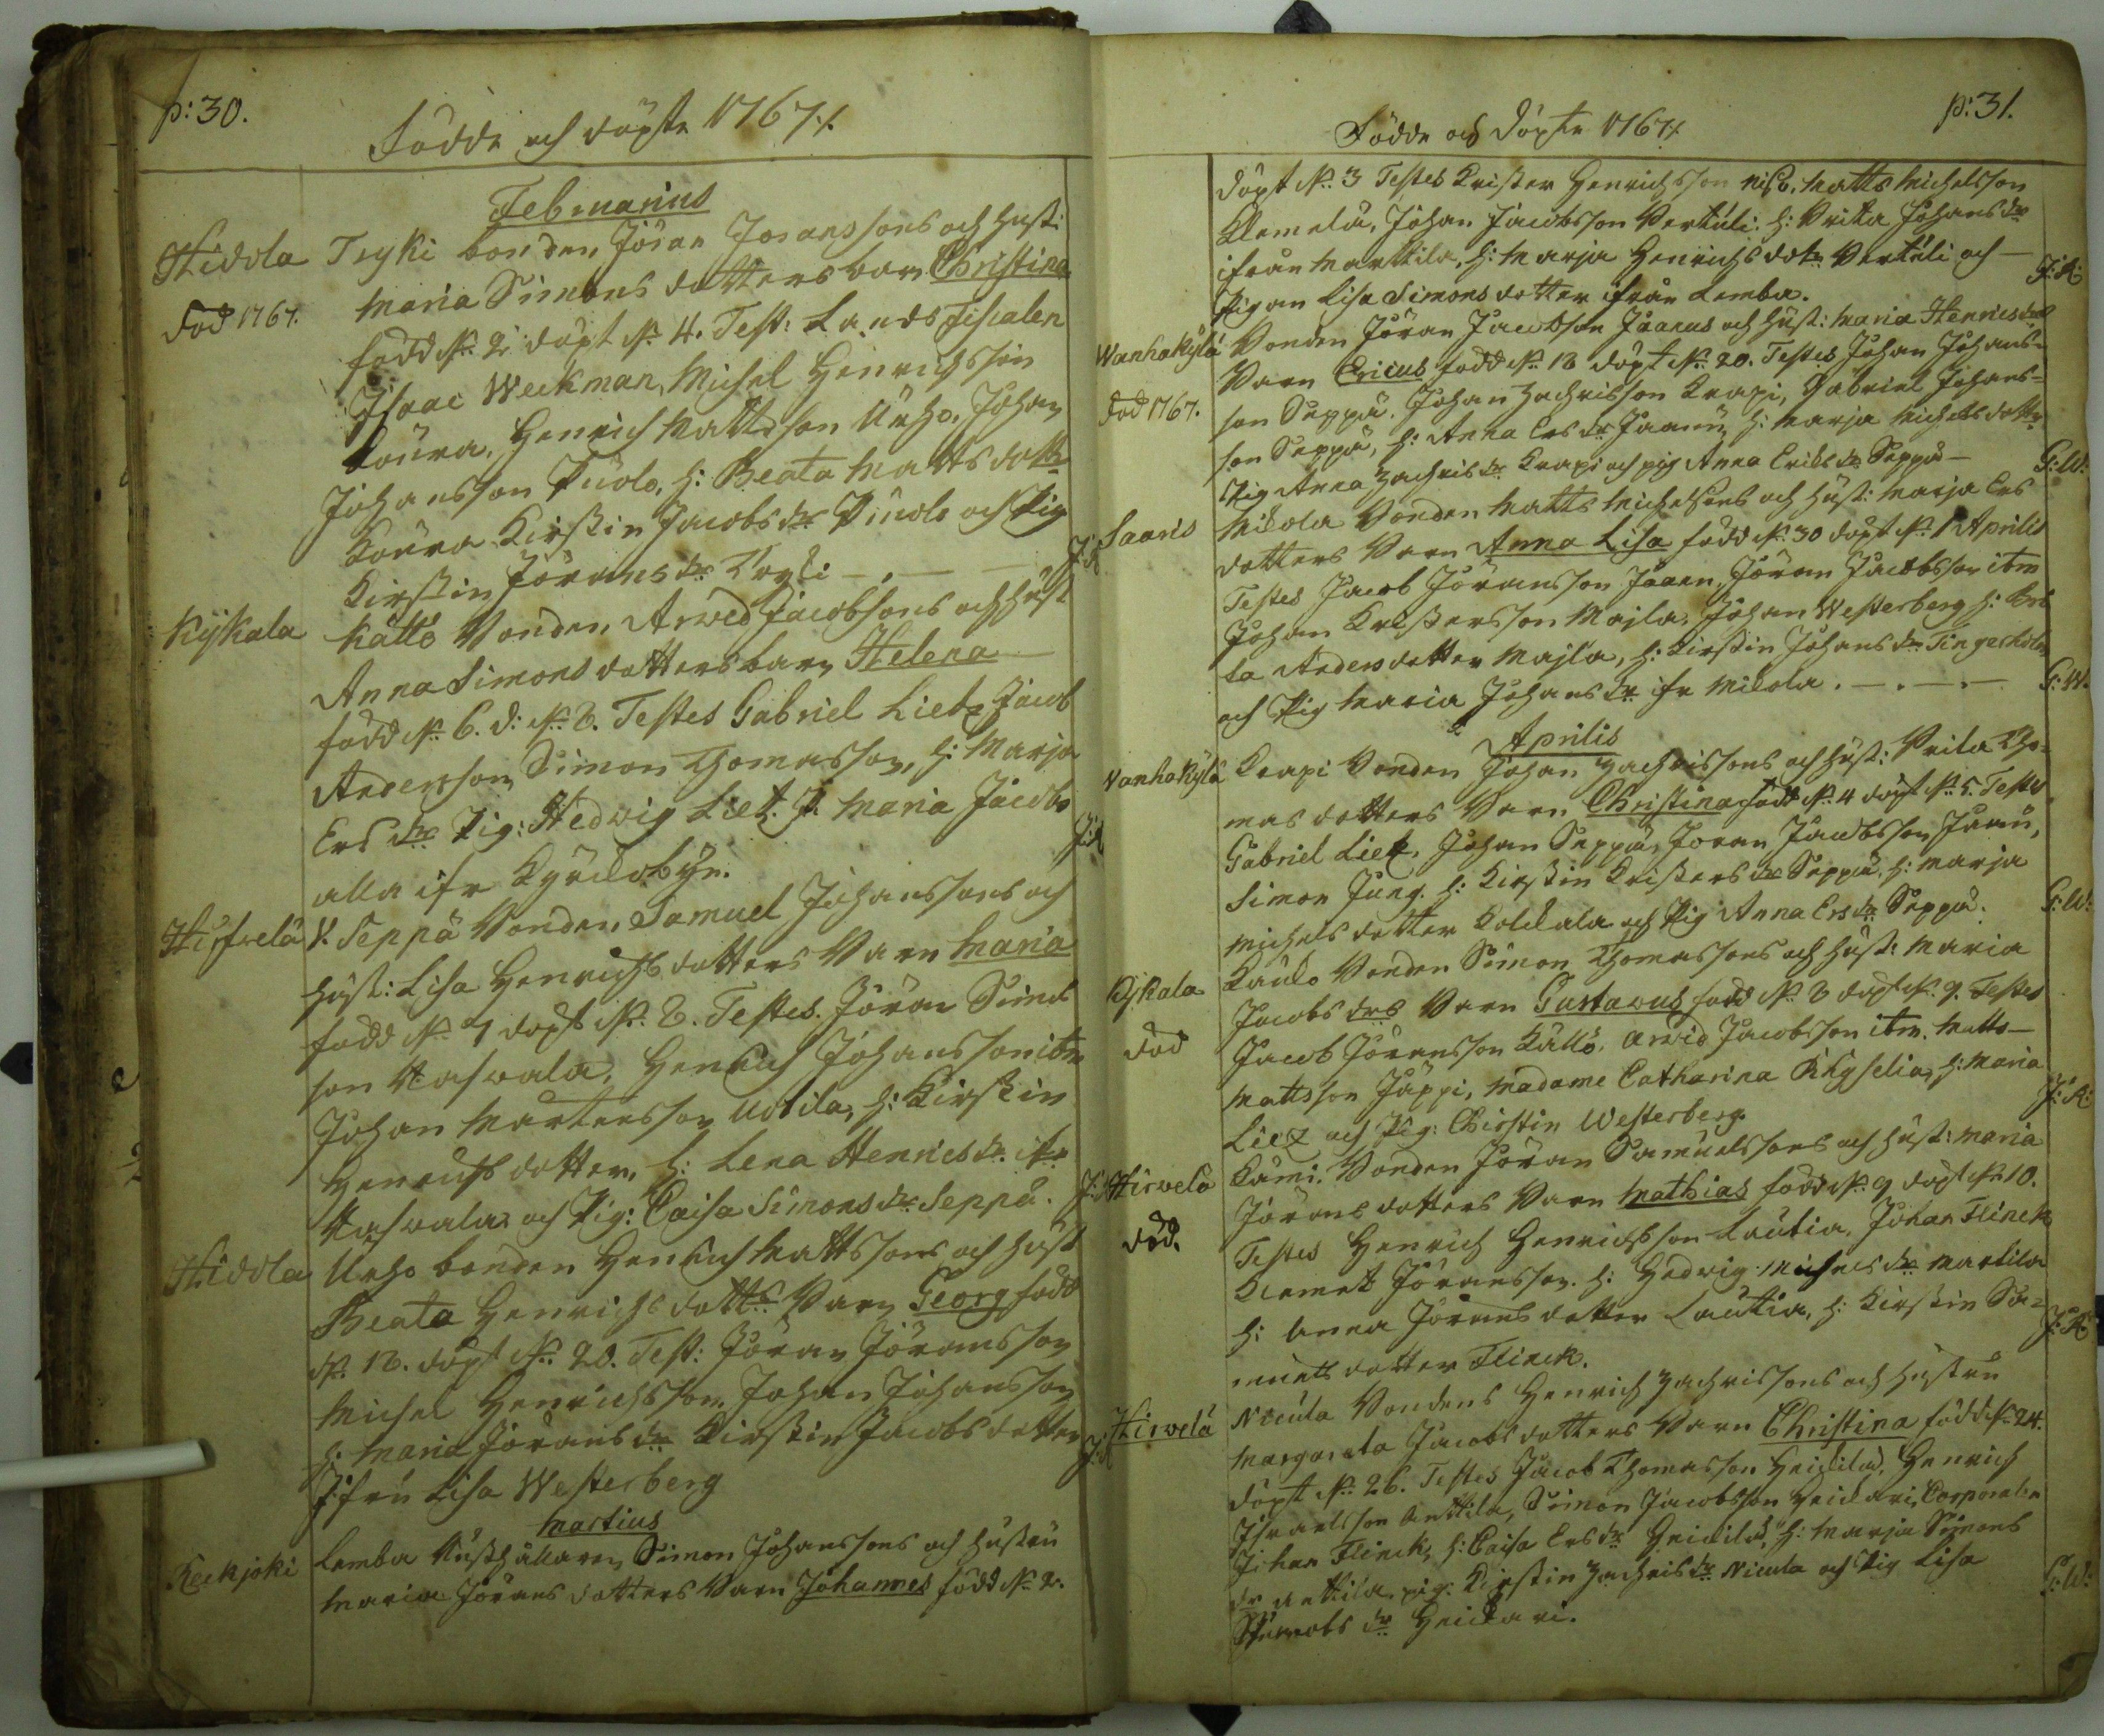 p: 30.
Födde och döpte 1767 ./.
Februarius
Hidola Tryki bonden Jöran Joranssons och Hust:
död 1767. Maria Simons dotters barn Christina
född No. 2 döpt No. 4. Test: Lands Fiscalen
Isaac Weckman, Michel Henrichsson
Koura, Henrich Mattsson Urho, Johan
Johansson Puolo, h: Beata Matts dottr
Koura Kirstin Jacobs dr Puolo och Pig
Kirstin Jörans dr Tryki J: A
Kÿkala Kättö Bonden Arwed Jacobsons och Hust
Anna Simons dotters barn Helena
född No. 6. d: No. 8. Testes Gabriel Lietz Jacob
Andersson, Simon Thomasson, h: Marja
Ers dr Pig: Hedwig Liet. P. Maria Jacobs
alla ifr J: A
Hirfvelä V. Seppä Bonden Samuel Johanssons och
Hust: Lisa Henrichs dotters Barn Maria
född No. 7 döpt No. 8. Testes. Jöran Simons
son Henrich Johansson itm
Johan Mårtensson Uotila, h: Kirstin
Henrichs dotter, h: Lena Henrics dr ifr
och Pig: Caisa Simons dr Seppä. J: A
Hidola Urho bonden Henrich Mattssons och Hust
Beata Henrichs dotts Barn Georg född
No. 18. döpt No. 20. Test: Jöran Jöransson
Michel Henrichsson, Johan Johansson
h: Maria Jörans dr Kirstin Jacobs dotter J: A
Jifru Lisa Westerberg
Martius
Keckjoki Lemba Rusthållaren Simon Johanssons och Hustru
Maria Jörans dotters Barn Johannes född No. 2.
p: 31.
Födde och Döpte 1767 ./.
döpt No. 3 Testes Krister Henrichsson Matts Michelsson
Klemelä, Johan Jacobsson Vertuli. h: Brita Johans dr
ifrån Marttila, h: Marja Henrichs dotr Vertuli och —
Pigan Lisa Simons dotter ifrån Lemba. J: A:
Wanhakylä Bonden Jöran Jacobson Jaanus och Hust: Maria Henrics drs
Barn Ericus född No. 18 döpt No. 20. Testes Johan Johans-
död 1767. son Seppä. Johan Zachrisson Krapi, Gabriel Johans=
son Seppä, h: Anna Ers dr Jaanu, h: Marja Michels dottr
Pig Anna Zachris dr Krapi och pig Anna Eriks dr Seppä — G: W:
Saaris Mikola Bonden Matts Michelsons och Hust: Marja Ers
dotters Barn Anna Lisa född No. 30 döpt No. 1 Aprilis
Testes Jacob Jöransson Jaann, Jöran Jacobsson itm
Johan Kristersson Majla, Johan Westerberg h: Bri
ta Anders dotter Majla, h: Kirstin Johans dr
och Pig Maria Johans dr ifr Mikola. G: W.
Aprilis
Wanhakylä Krapi Bonden Johan Zachrissons och Hust: Brita Tho=
mas dotters Barn Christina född No. 4 döpt No. 5. Testes
Gabriel Lietz, Johan Seppä, Joran Jacobsson Jaanu,
Simon Jung. h: Kirstin Kristers dr Seppä, h: Marja
Michels dotter Kolkala och Pig Anna Ers dr Seppä. G: W:
Kÿkala Bonden Simon Thomassons och Hust: Maria
Jacobs drs Barn Gustavus född No. 8 döpt No. 9. Testes
död Jacob Jöransson Kättö, Arwid Jacobsson itm. Matts
Mattsson Jäppi, Madame Catharina h: Maria
Lietz och Pig: Christin Westerberg. J: A:
Hirvelä Kämi. Bonden Jöran Samuelssons och Hust: Maria
Jörans dotters Barn Mathias född No. 9 döpt No. 10.
död. Testes Henrich Henrichsson Lautia, Johan Flinck,
Klemet Jöransson. h: Hedwig Michels dr Martila
h: Anna Jörans dotter Lautia, h: Kirstin Sa=
muels dotter Flinck. J: A:
Hirvelä Nicula Bondens Henrich Zachrissons och Hustru
Margareta Jacobs dotters Barn Christina född No. 24.
döpt No. 26. Testes Jacob Thomasson Heickilä, Henrich
Israelsson Anttila, Simon Jacobsson Heickari, Corporalen
Johan Flinck, h: Caisa Ers dr Heickilä, h: Marja Simons
dr Anttila, pig: Kirstin Zachris dr Nicula och Pig Lisa
dr Heickari. G: W: